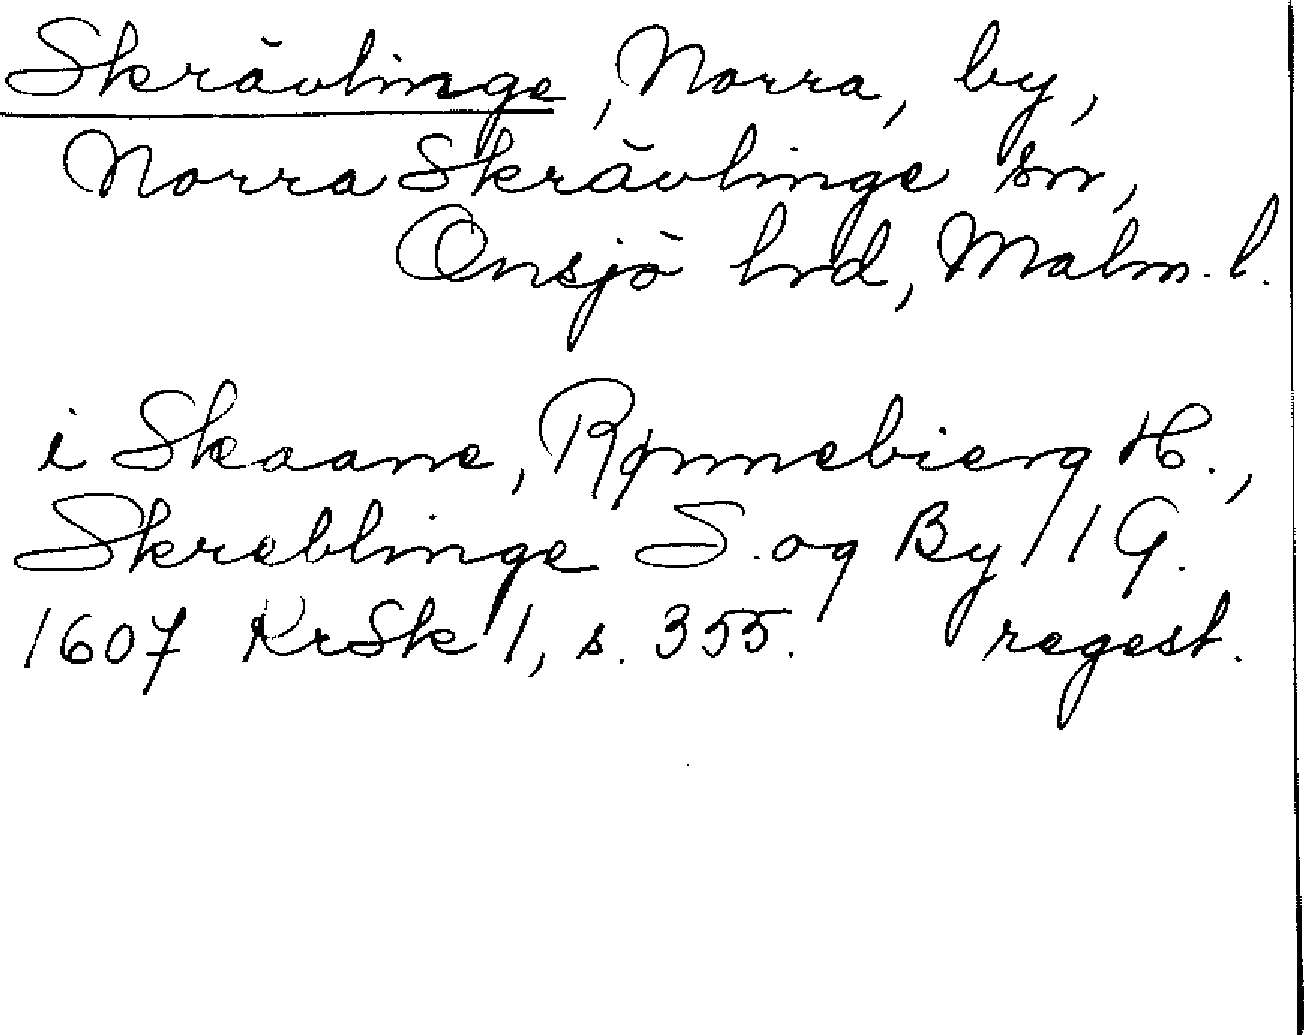 Skrävlinge, Norra, by,
Norra Skrävlinge sn,
Onsjö hrd, Malm. l.
i Skaane, Rønnebierg H.,
Skreblinge S. og By 1 G.
1607 KrSk 1, s. 355. regest.